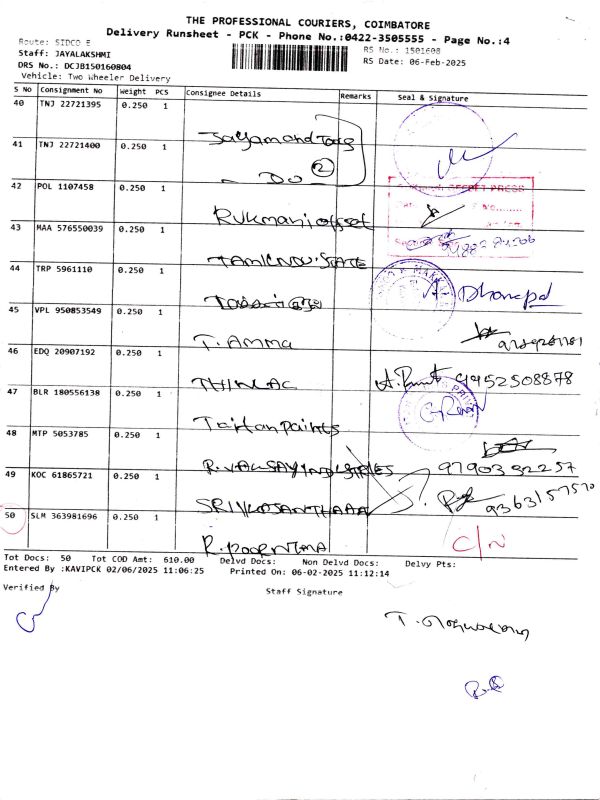 THE PROFESSIONAL COURIERS, COIMBATORE
Delivery Runsheet - PCK - Phone No.:0422-3505555 - Page No.:4
Route: SIDCO E
Staff: JAYALAKSHMI
DRS No.: DCJB150160804
Vehicle: Two Wheeler Delivery
RS No.: 1501608
RS Date: 06-Feb-2025
S No Consignment No Weight PCS Consignee Details Remarks Seal & Signature
40 TNJ 22721395 0.250 1
41 TNJ 22721400 0.250 1
- Do - 2
42 POL 1107458 0.250 1
Rukmani offset
43 MAA 576550039 0.250 1
TAMILNDU STATE
44 TRP 5961110 0.250 1
Dhanapal
45 VPL 950853549 0.250 1
T. AMMA
46 EDQ 20907192 0.250 1
THINLAC 9952508878
47 BLR 180556138 0.250 1
Taitan paints
48 MTP 5053785 0.250 1
9790332257
49 KOC 61865721 0.250 1
9363157570
50 SLM 363981696 0.250 1
R. POORNIMA C/N
Tot Docs: 50 Tot COD Amt: 610.00 Delvd Docs: Non Delvd Docs: Delvy Pts:
Entered By :KAVIPCK 02/06/2025 11:06:25 Printed On: 06-02-2025 11:12:14
Verified By
Staff Signature